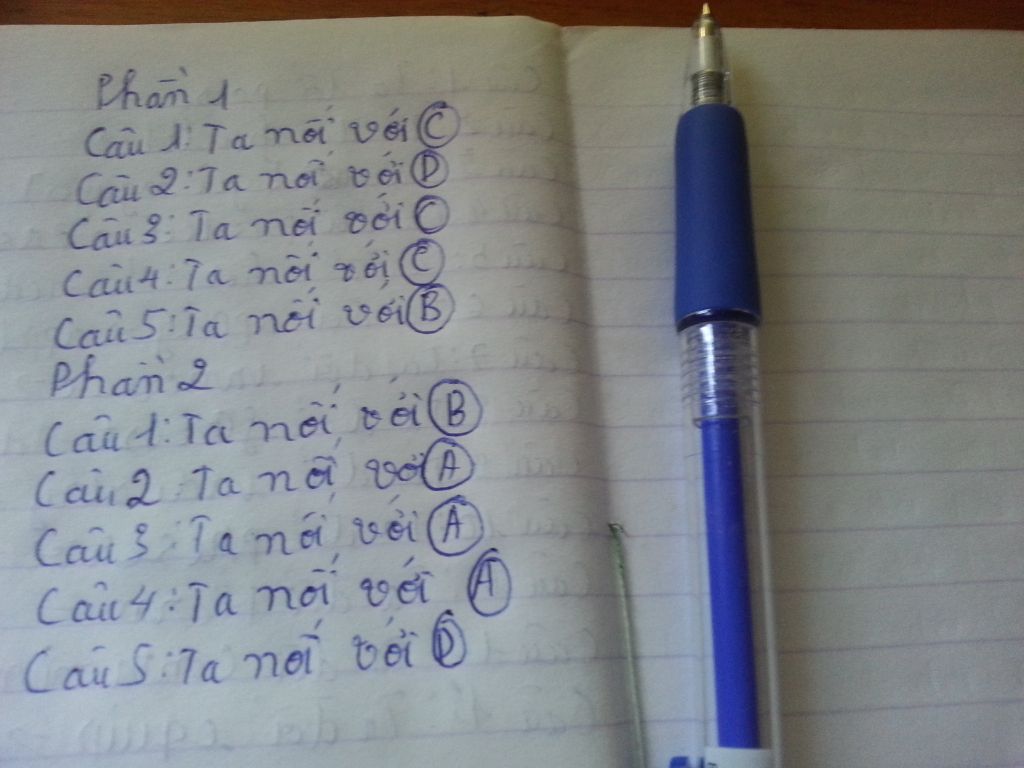 Phần 1
Câu 1: Ta nối với C
Câu 2: Ta nối với D
Câu 3: Ta nối với C
Câu 4: Ta nối với C
Câu 5: Ta nối với B
Phần 2
Câu 1: Ta nối với B
Câu 2: Ta nối với A
Câu 3: Ta nối với A
Câu 4: Ta nối với A
Câu 5: Ta nối với D